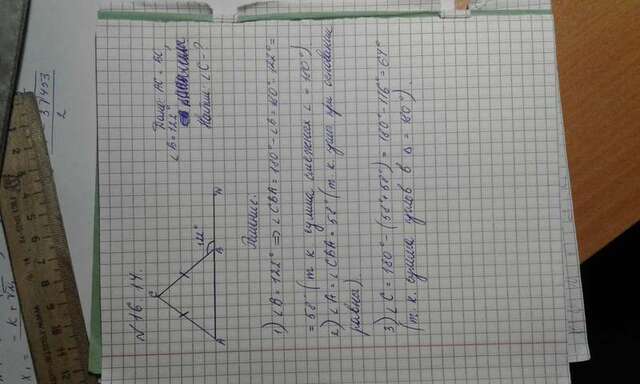 N 16.14.
C
A
B
122°
Дано: AC = BC,
∠B = 122°
Найти: ∠C - ?
Решение.
1) ∠B = 122° ⇒ ∠CBA = 180° - ∠B = 180° - 122° =
= 58° (т.к. сумма смежных ∠ = 180°)
2) ∠A = ∠CBA = 58° (т.к. углы при основании
равны).
3) ∠C = 180° - (58° + 58°) = 180° - 116° = 64°
(т.к. сумма углов в Δ = 180°).
37403
2